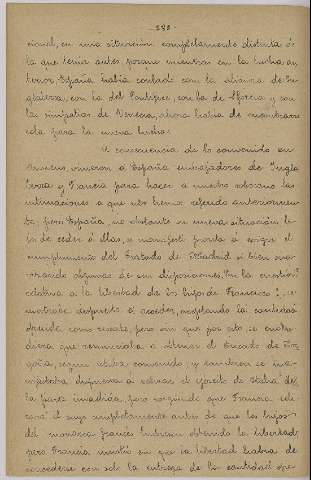 cional, en una situación completamente distinta á
la que tenía antes porque mientras en la lucha an-
terior España había contado con la alianza de In-
glaterra, con la del Pontífice, con la de Sforcia y con
las simpatías de Venecia, ahora había de encontrarse
sola para la nueva lucha.
A consecuencia de lo convenido en
vinieron á España embajadores de Ingla
terra y Francia para hacer á nuestro soberano las
intimaciones a que nos hemos referido anteriormen-
te; pero España, no obstante su nueva situación le-
jos de ceder á ellas, se manifestó pronta á exigir el
cumplimiento del Tratado de Madrid si bien
algunas de sus disposiciones. En la cuestion
relativa á la libertad de los hijos de Francisco 1º, se
mostraba dispuesto á acceder, aceptando la cantidad
ofrecida como rescate, pero sin que por esto se enten-
diera que renunciaba á obtener el Ducado de Bor-
goña, según estaba convenido; y tambien se ma-
nifestaba dispuesto á retirar el ejército de Italia de
la parte invadida, pero exigiendo que Francia reti-
rara el suyo completamente antes de que los hijos
del monarca francés hubieran obtenido la libertad;
pero Francia insistió en que la libertad habia de
concederse con solo la entrega de la cantidad ofre-